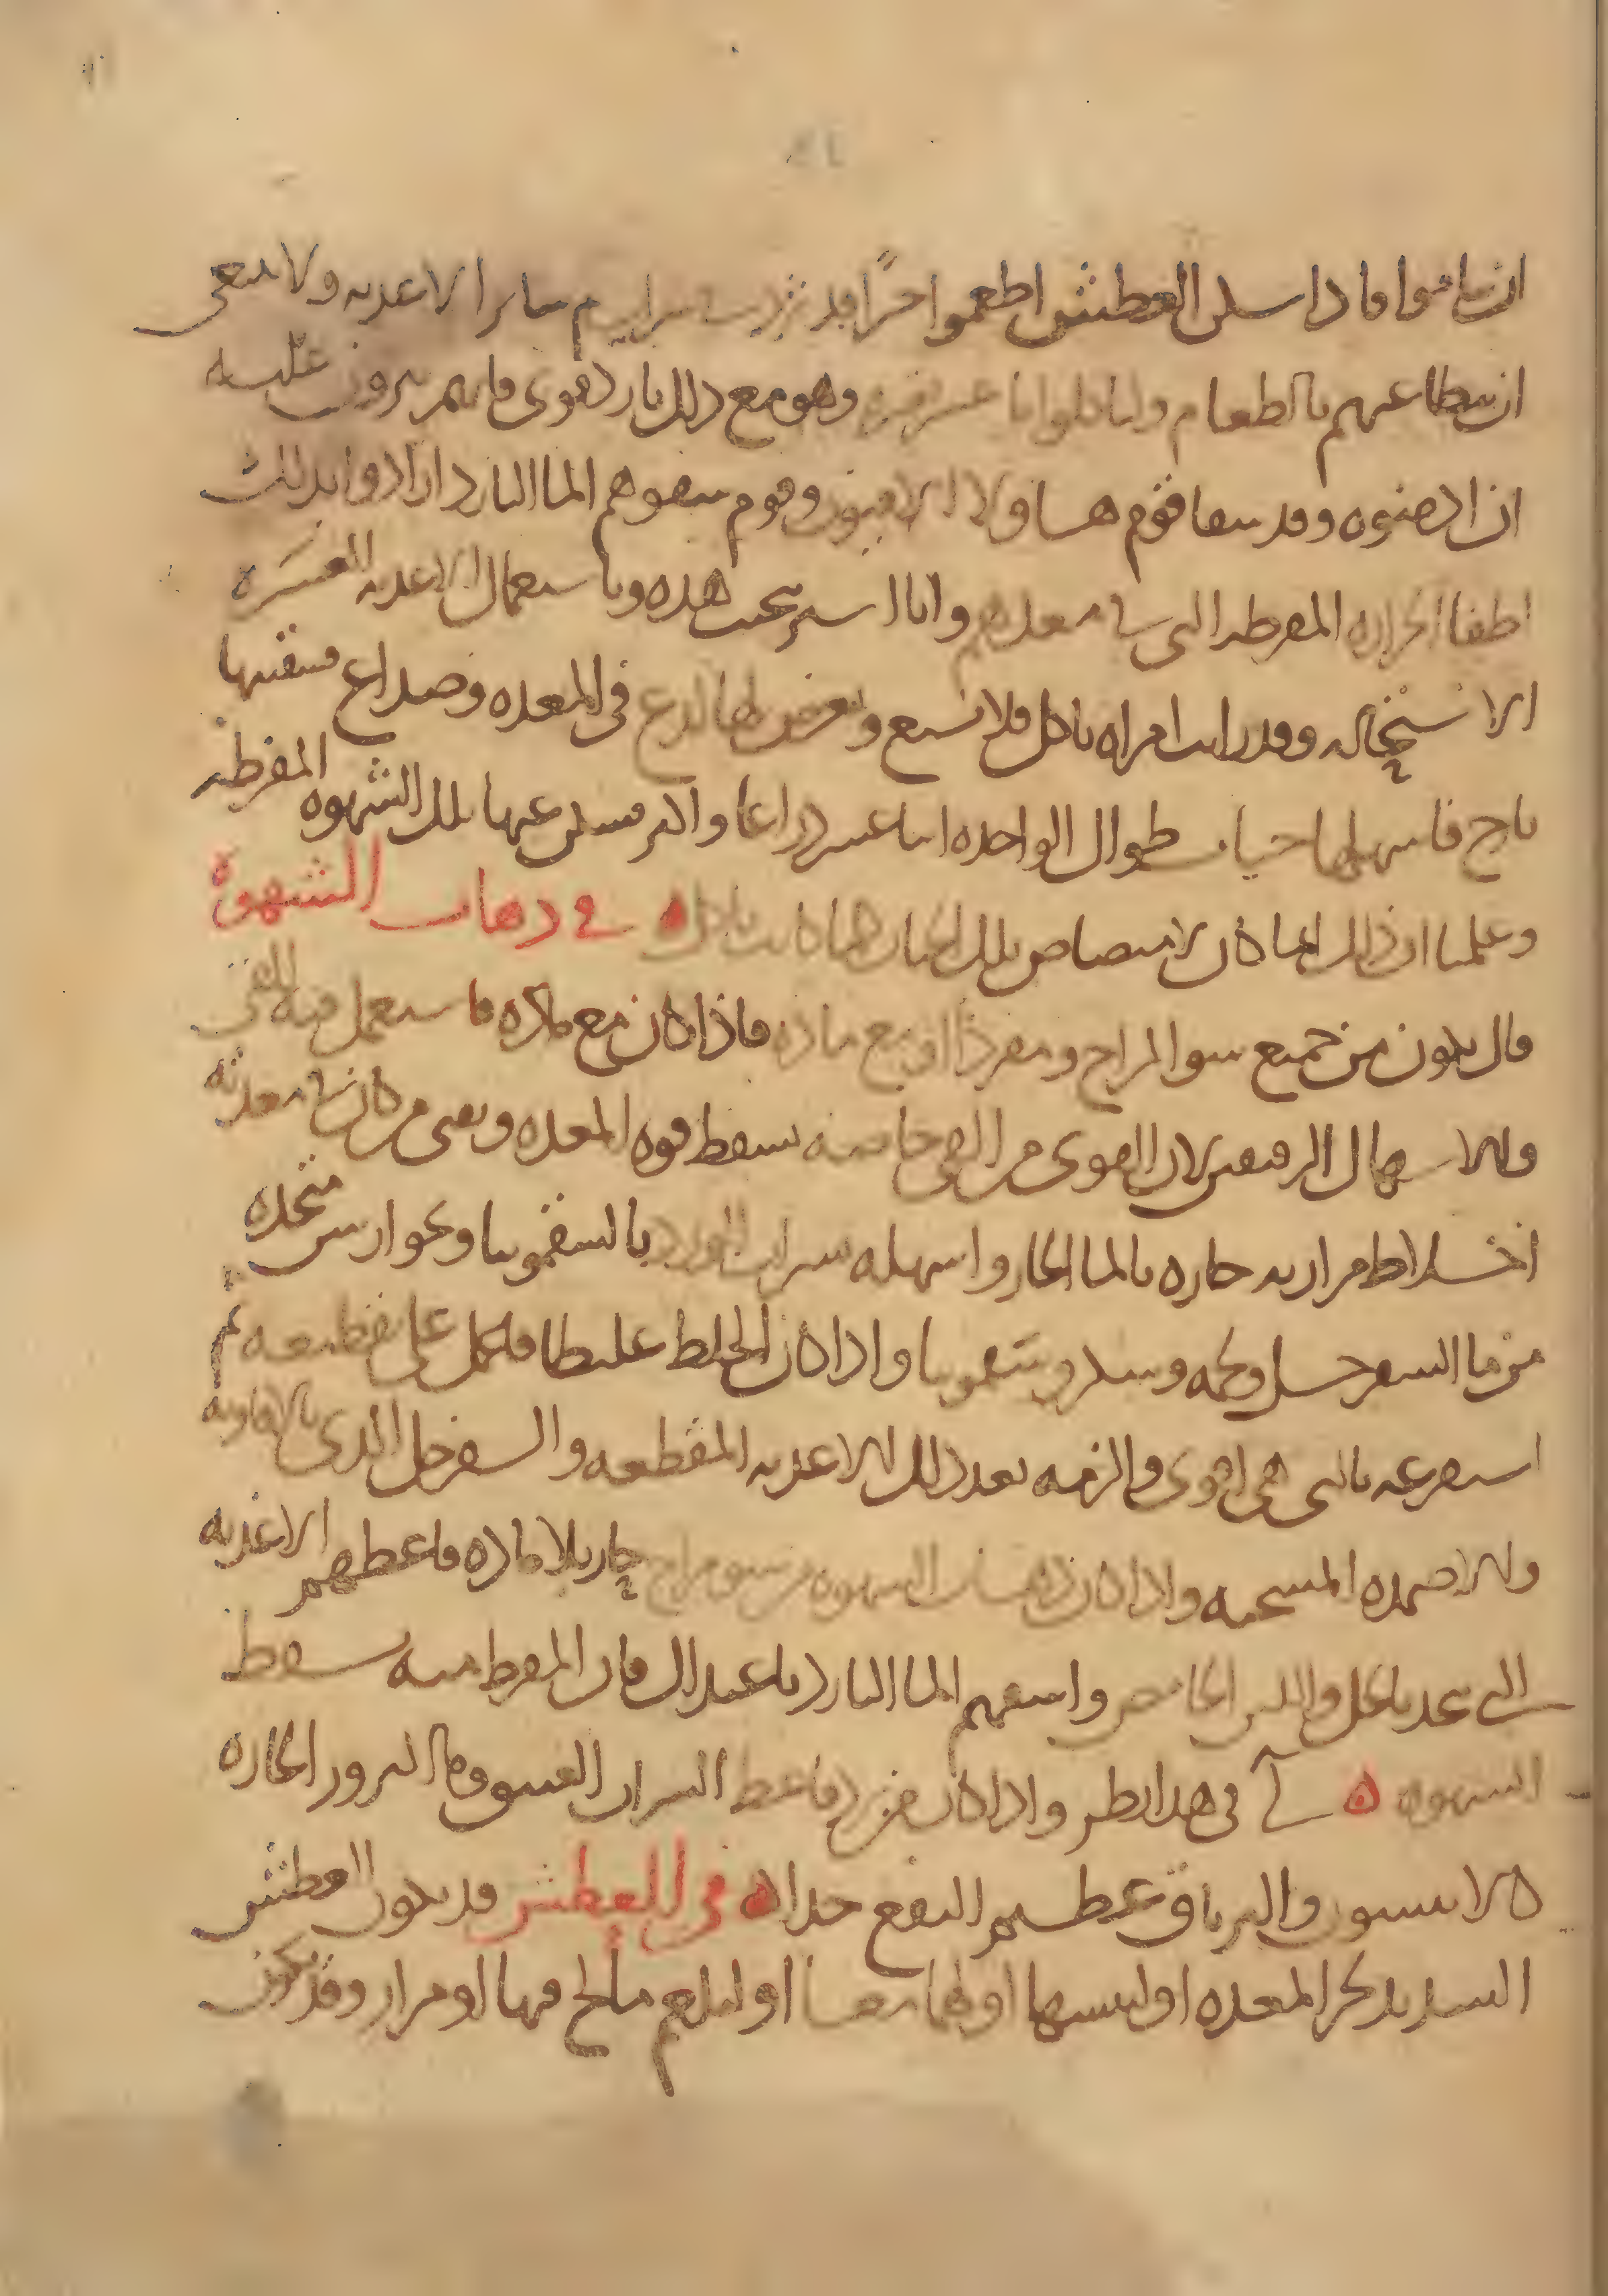 ان يناموا فاذا سكن العطش اطعموا خبزا قد ثرد شراب ثم ساير الاغذيه ولا ينبغى
ان يبطا عنهم بالطعام ولياكلوا ما وهو مع ذلك بارد قوى فانهم يبرون عليه
ان ادمنوه وقد سقا قوم هاولا الافيون وقوم سقوهم الما البارد ارادوا بذلك
اطفا الحراره المفرطه التى فى معدهم وانا استريحت هذه وباستعمال الاغذيه العسره
الاستحاله وقد رايت امراه تاكل فلا تشبع ويعرض لها لدع فى المعده وصداع فسقيتها
يارج فاسهلها حيات طوال الواحده اثنا عشر ذراعا واكثر فسكن عنها تلك الشهوه المفرطه
وعلمنا ان ذلك انما كان لامتصاص تلك الحيات لما كانت تاكل ه فى ذهاب الشهوة
قال يكون من جميع سو المزاج ومفردا او مع ماده فاذا كان مع ماده فاستعمل فيه القى
والاسهال الرقيقين لان القوى من القى خاصه يسقط قوه المعده ويقى من كان فى معدته
اخلاط مراريه حاره بالما الحار واسهله شراب الورد بالسقمونيا وبجوارش متخذه
من ما السفرجل ولحمه وسكر وسقمونيا واذا كان الخلط غليظا فاحمل على تقطيعه ثم
استفرغه بالتى هى اقوى والزمه بعد ذلك الاغذيه المقطعه والسفرجل الذى بالافاويه
والاضمده المسخنه واذا كان ذهاب الشهوه من سو مزاج حار بلا ماده فاعطهم الاغذيه
التى تتخذ بالخل واللبن الحامض واسقهم الما البارد باعتدال فان المفرط منه يسقط
الشهوه ه لى فى هذا نظر واذا كان من برد فاعط الشراب العتيق والبزور الحاره
كالانيسون والترياق عظيم النفع جدا ه فى العطش قد يكون العطش
الشديد لحر المعده او ليبسها او لهما معا او لبلغم مالح فيها او مرار وقد يكون